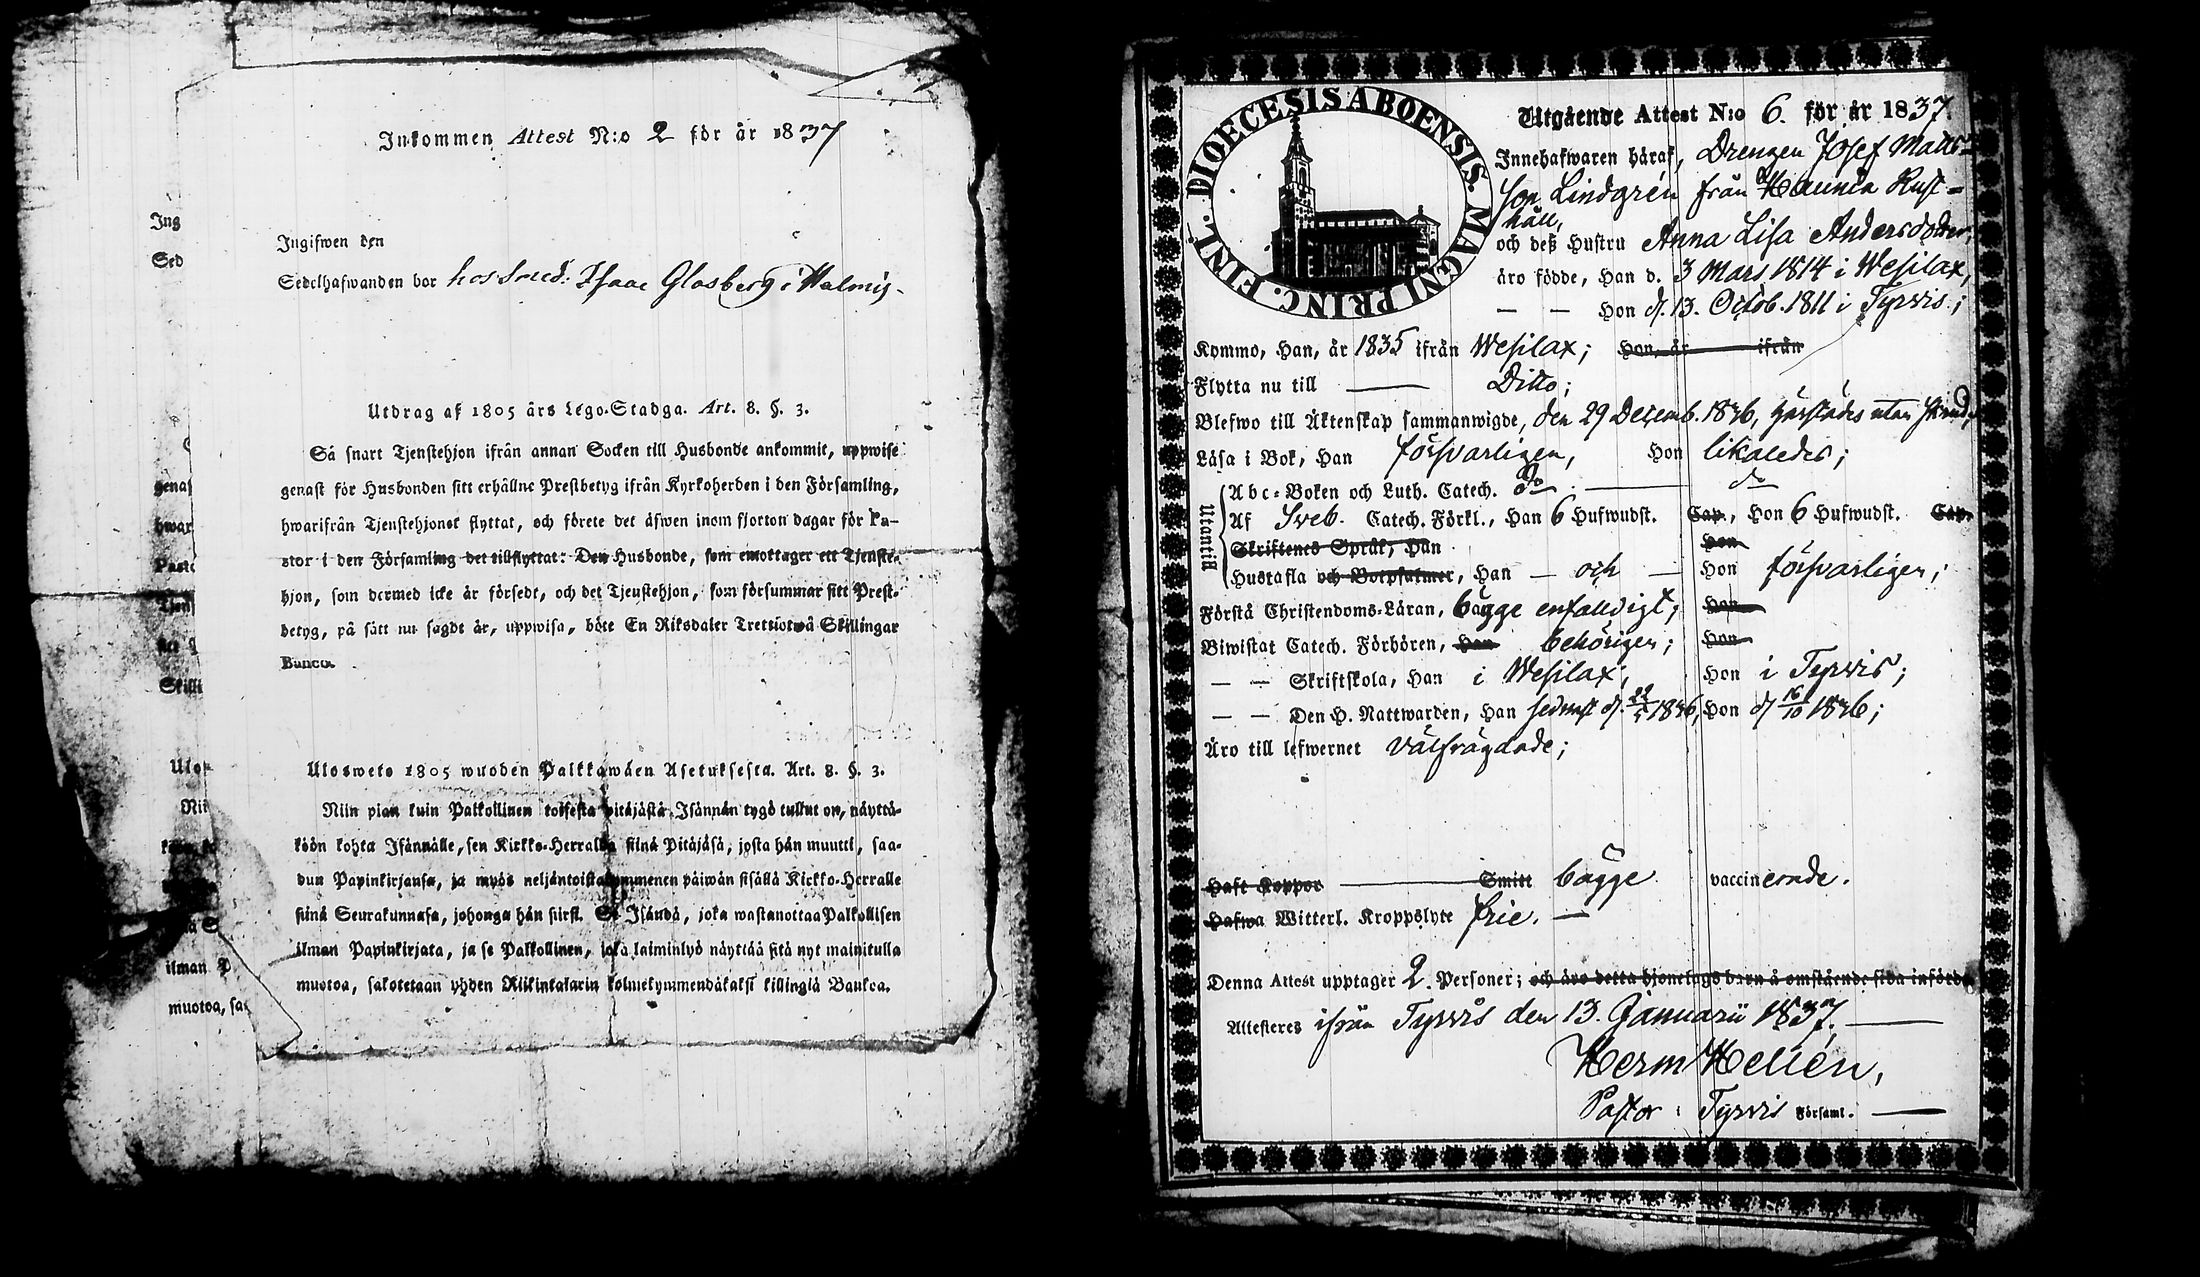 Inkommen Attest N:o 2 för år 1837
Ingifwen den
Sedelhafwanden bor hos Smed: Isaac Glasberg i Malmis
Utdrag af 1805 års Lego-Stadga. Art. 8. §. 3.
Så snart Tjenstehjon ifrån annan Socken till Husbonde ankommit, uppwise
genast för Husbonden sitt erhållne Prestbetyg ifrån Kyrkoherden i den Församling,
hwarifrån Tjenstehjonet flyttat, och förete det äfwen inom fjorton dagar för Pa-
stor i den Församling det tillflyttat: Den Husbonde, som emottager ett Tjenste-
hjon, som dermed icke är försedt, och det Tjenstehjon, som försummar sitt Prest-
betyg, på sätt nu sagdt är, uppwisa, böte En Riksdaler Trettiotwå Skillingar
Banco.
Ulosweto 1805 wuoden Palkkawäen Asetuksesta. Art. 8. §. 3.
Niin pian kuin Palkollinen toisesta pitäjästä Isännän tygö tullut on, näyttä-
köön kohta Isännälle, sen Kirkko-Herralda siinä Pitäjäsä, josta hän muutti, saa-
dun Papinkirjansa, ja myös neljäntoistakymmenen päiwän sisällä Kirkko-Herralle
siinä Seurakunnasa, johonga hän siirsi. Se Isändä, joka wastanottaa Palkollisen
ilman Papinkirjata, ja se Palkollinen, joka laiminlyö näyttää sitä nyt mainitulla
muotoa, sakotetaan yhden Riikintalarin kolmekymmendäkaksi killingiä Bankoa.
Ing
Sed
genas
hwar
Past
Tjens
Skilli
Ulos
Nii
ilman P
muotoa, sa
DIOECESIS ABOENSIS. MAGNI PRINC. FINL.
Utgående Attest N:o 6. för år 1837.
Innehafwaren häraf, Drengen Josef Matts-
son Lindgrén från Haunia Rust-
håll,
och deß Hustru Anna Lisa Andersdotter,
äro födde, Han d. 3 Mars 1814 i Wesilax,
— — Hon d. 13. Octob. 1811 i Tyrvis;
Kommo, Han, år 1835 ifrån Wesilax; Hon, år ifrån
Flytta nu till — Ditto;
Blefwo till Äktenskap sammanwigde, den 29 Decemb. 1836, härstädes utan
Läsa i Bok, Han försvarligen, Hon likaledes;
Utantill
Abc-Boken och Luth. Catech. do — do
Af Sveb. Catech. Förkl., Han 6 Hufwudst. Cap., Hon 6 Hufwudst. Cap.
Skriftenes Språk, Han Hon
Hustafla och Botpsalmer, Han — och — Hon försvarligen;
Förstå Christendoms-Läran, bägge enfaldigt; Hon
Biwistat Catech. Förhören, Han behörigen; Hon
— — Skriftskola, Han i Wesilax, Hon i Tyrvis;
— — Den H. Nattwarden, Han sednast d. 22/5 1836, Hon d 16/10 1836;
Äro till lefwernet välfrägdade;
Haft Koppor — Smitt bägge vaccinerade.
Hafwa Witterl. Kroppslyte frie. —
Denna Attest upptager 2 Personer; och äro detta hjonelags barn å omstående sida införde
Attesteres ifrån Tyrvis den 13. Januarii 1837. —
Herm Hellén,
Pastor i Tyrvis Församl. —